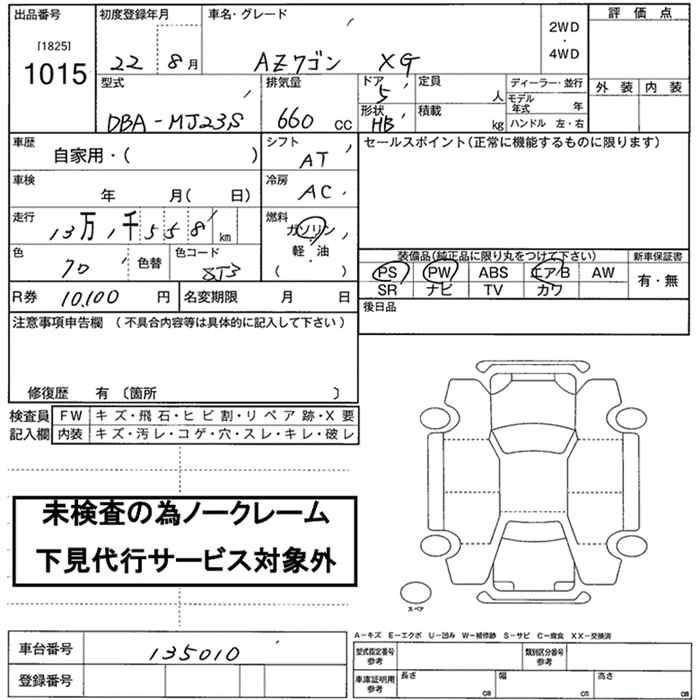 出品番号 初度登録年月 車名・グレード 評価点
[1825]
1015
22 8月 AZワゴン XG 2WD・4WD
型式 排気量 ドア 定員 ディーラー・並行 外装 内装
DBA-MJ23S 660 CC 5 人 モデル年式 年
形状 積載
HB kg ハンドル 左・右
車歴 シフト セールスポイント(正常に機能するものに限ります)
自家用・( ) AT
車検 冷房
年 月( 日) AC
走行 燃料
13万 1千 558 km ガソリン
軽・油
( )
色 色替 色コード
SJ3
装備品(純正品に限り丸をつけて下さい) 新車保証書
PS PW ABS エアB AW 有・無
SR ナビ TV カワ
R券 10,100 円 名変期限 月 日
後日品
注意事項申告欄 (不具合内容等は具体的に記入して下さい)
修復歴 有 〔箇所 〕
検査員 FW キズ・飛石・ヒビ割・リペア跡・X要
記入欄 内装 キズ・汚レ・コゲ・穴・スレ・キレ・破レ
未検査の為ノークレーム
下見代行サービス対象外
スペア
A-キズ E-エクボ U-凹み W-補修跡 S-サビ C-腐食 XX-交換済
車台番号 135010
登録番号
型式指定番号 参考 類別区分番号 参考
車庫証明用 参考 長さ cm 幅 cm 高さ cm